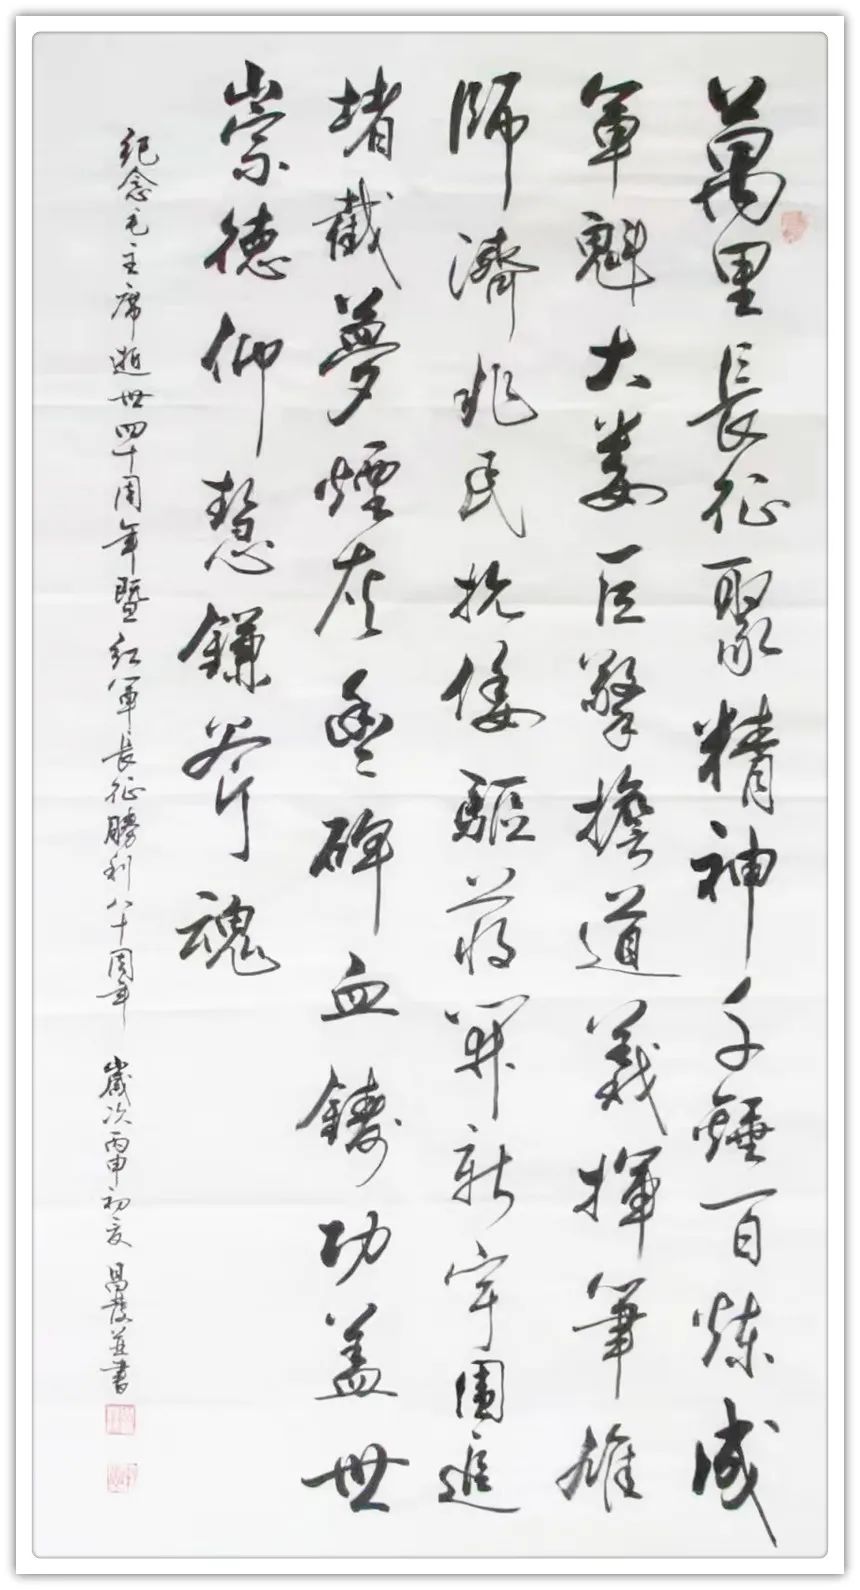 萬里長征聚精神千錘百煉成
軍魁大娄巨擎擔道義揮筆雄
師濟兆民抗倭驅蔣開新宇圍追
堵截夢煙灰豐碑血鑄功蓋世
崇德仰慧鎌斧魂
紀念毛主席逝世四十周年暨紅軍長征勝利八十周年 歲次丙申初夏 昌發並書